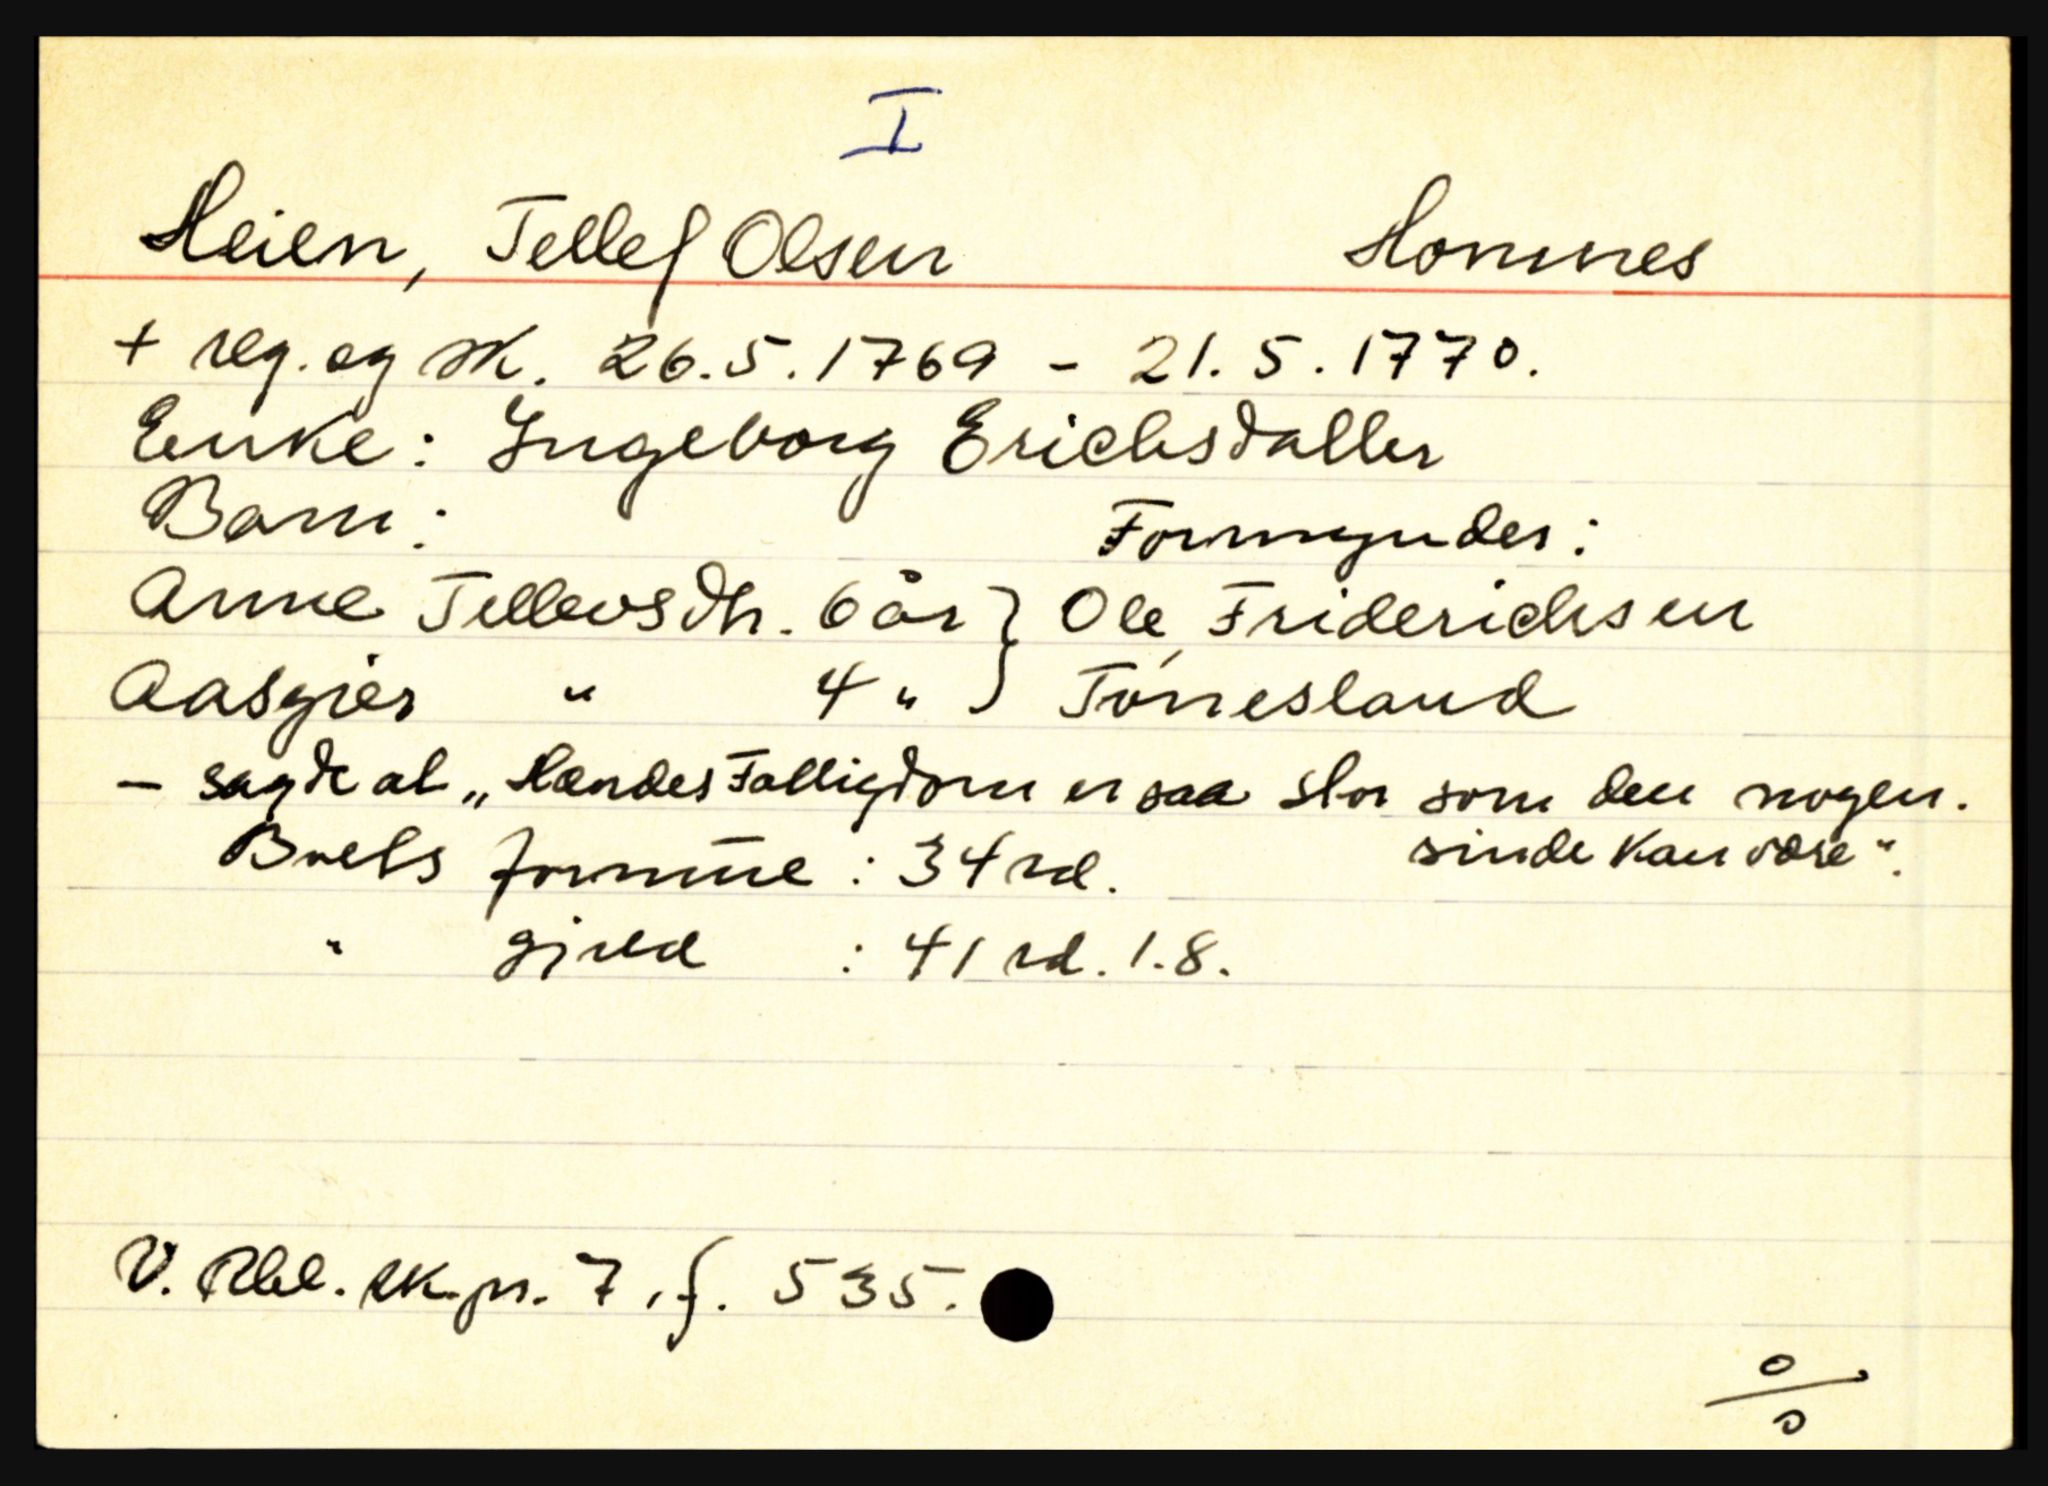 I
Heien, Tellef Olsen Hommes
+ reg. og sk. 26.5.1769 - 21.5.1770.
Enke: Ingeborg Erichsdatter
Barn: Formynder:
Anne Tellevsdtr. 6 år } Ole Friderichsen
Aasgier " 4 " } Tónnesland
- sagde at „Hendes Fattigdom er saa stor som den nogen-
sinde kan være".
Boets formue : 34 rd.
" gjeld : 41 rd. 1.8.
V. Rbd. sk.pr. 7, f. 535.
0/0